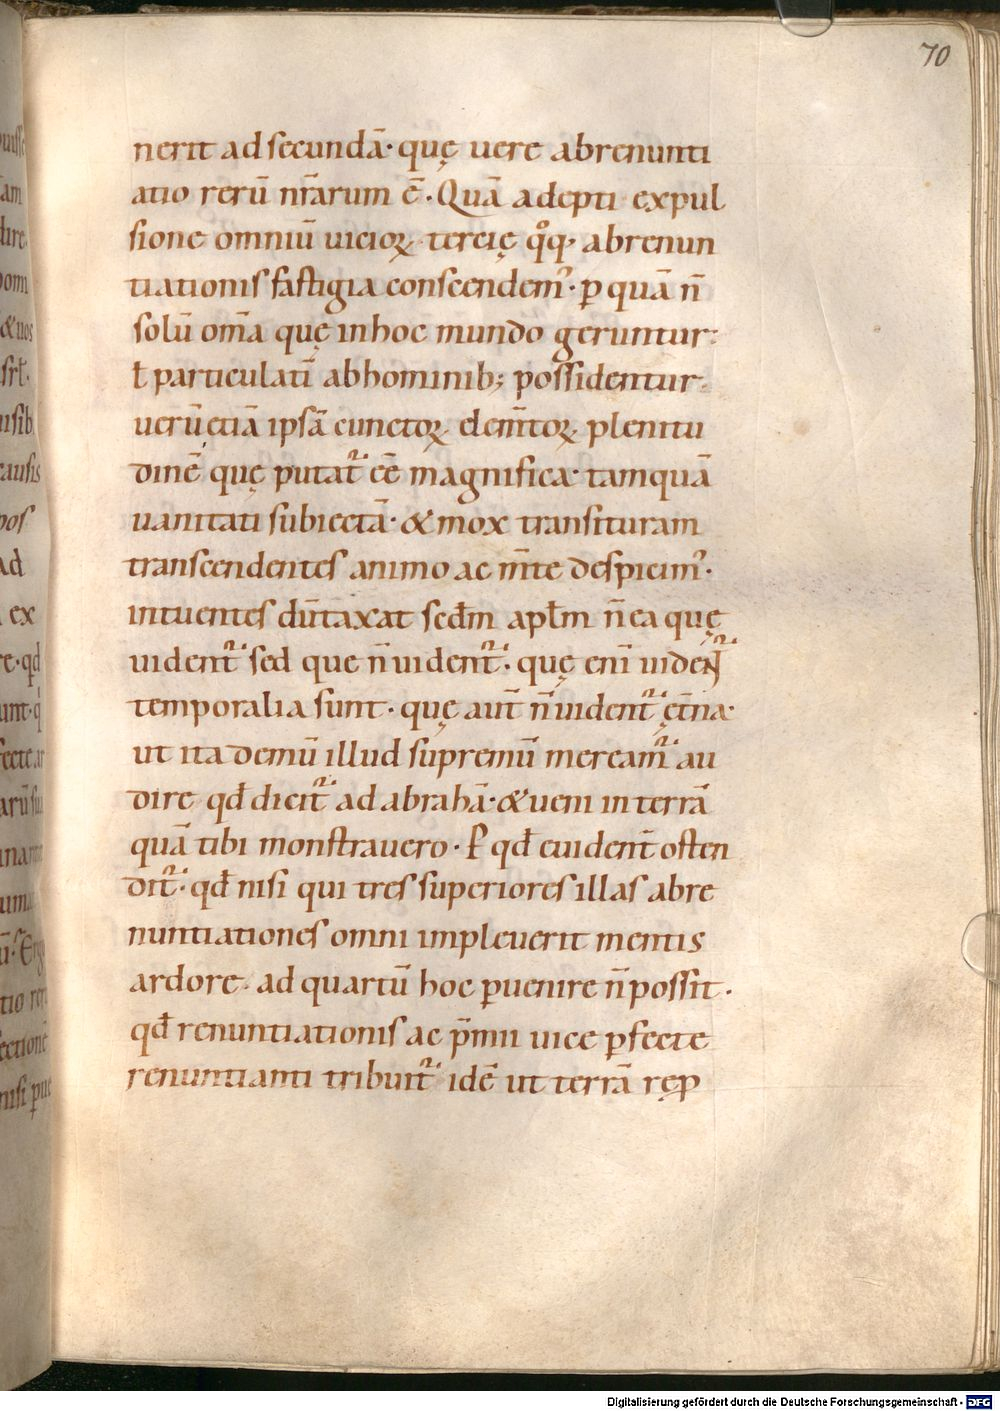 70
nerit ad secundā· quę uere abrenunti
atio rerū nr̄arum ē· Quā adepti expul
sione omniū uicioꝝ tercię qͦq· abrenun
tiationis fastigia conscendemꝰ· ꝑ quā n̄
solū om̄a quę in hoc mundo geruntur·
ł particulatī ab hominib; possidentur·
uerū etiā ipsā cunctoꝝ elem̄toꝝ plenitu
dinē quę putat᷑ ēē magnifica· tamquā
uanitati subiectā· & mox transituram
transcendentes animo ac m̄te despicimꝰ·
intuentes dūtaxat scd̄m apłm n̄ ea quę
uident᷑ sed que n̄ uident᷑· quę enī uident᷑
temporalia sunt· quę aut̄ n̄ uident᷑ ęt̄na·
ut ita demū illud supremū meream᷑ au
dire qđ dicit᷑ ad abrahā· & ueni in terrā
quā tibi monstrauero· P qđ euident̄ osten
dit᷑· qđ nisi qui tres superiores illas abre
nuntiationes omni impleuerit mentis
ardore· ad quartū hoc ꝑuenire n̄ possit·
qđ renuntiationis ac p̄mii uice ꝑfecte
renuntianti tribuit᷑ idē ut terrā ręꝓ
Digitalisierung gefördert durch die Deutsche Forschungsgemeinschaft - DFG